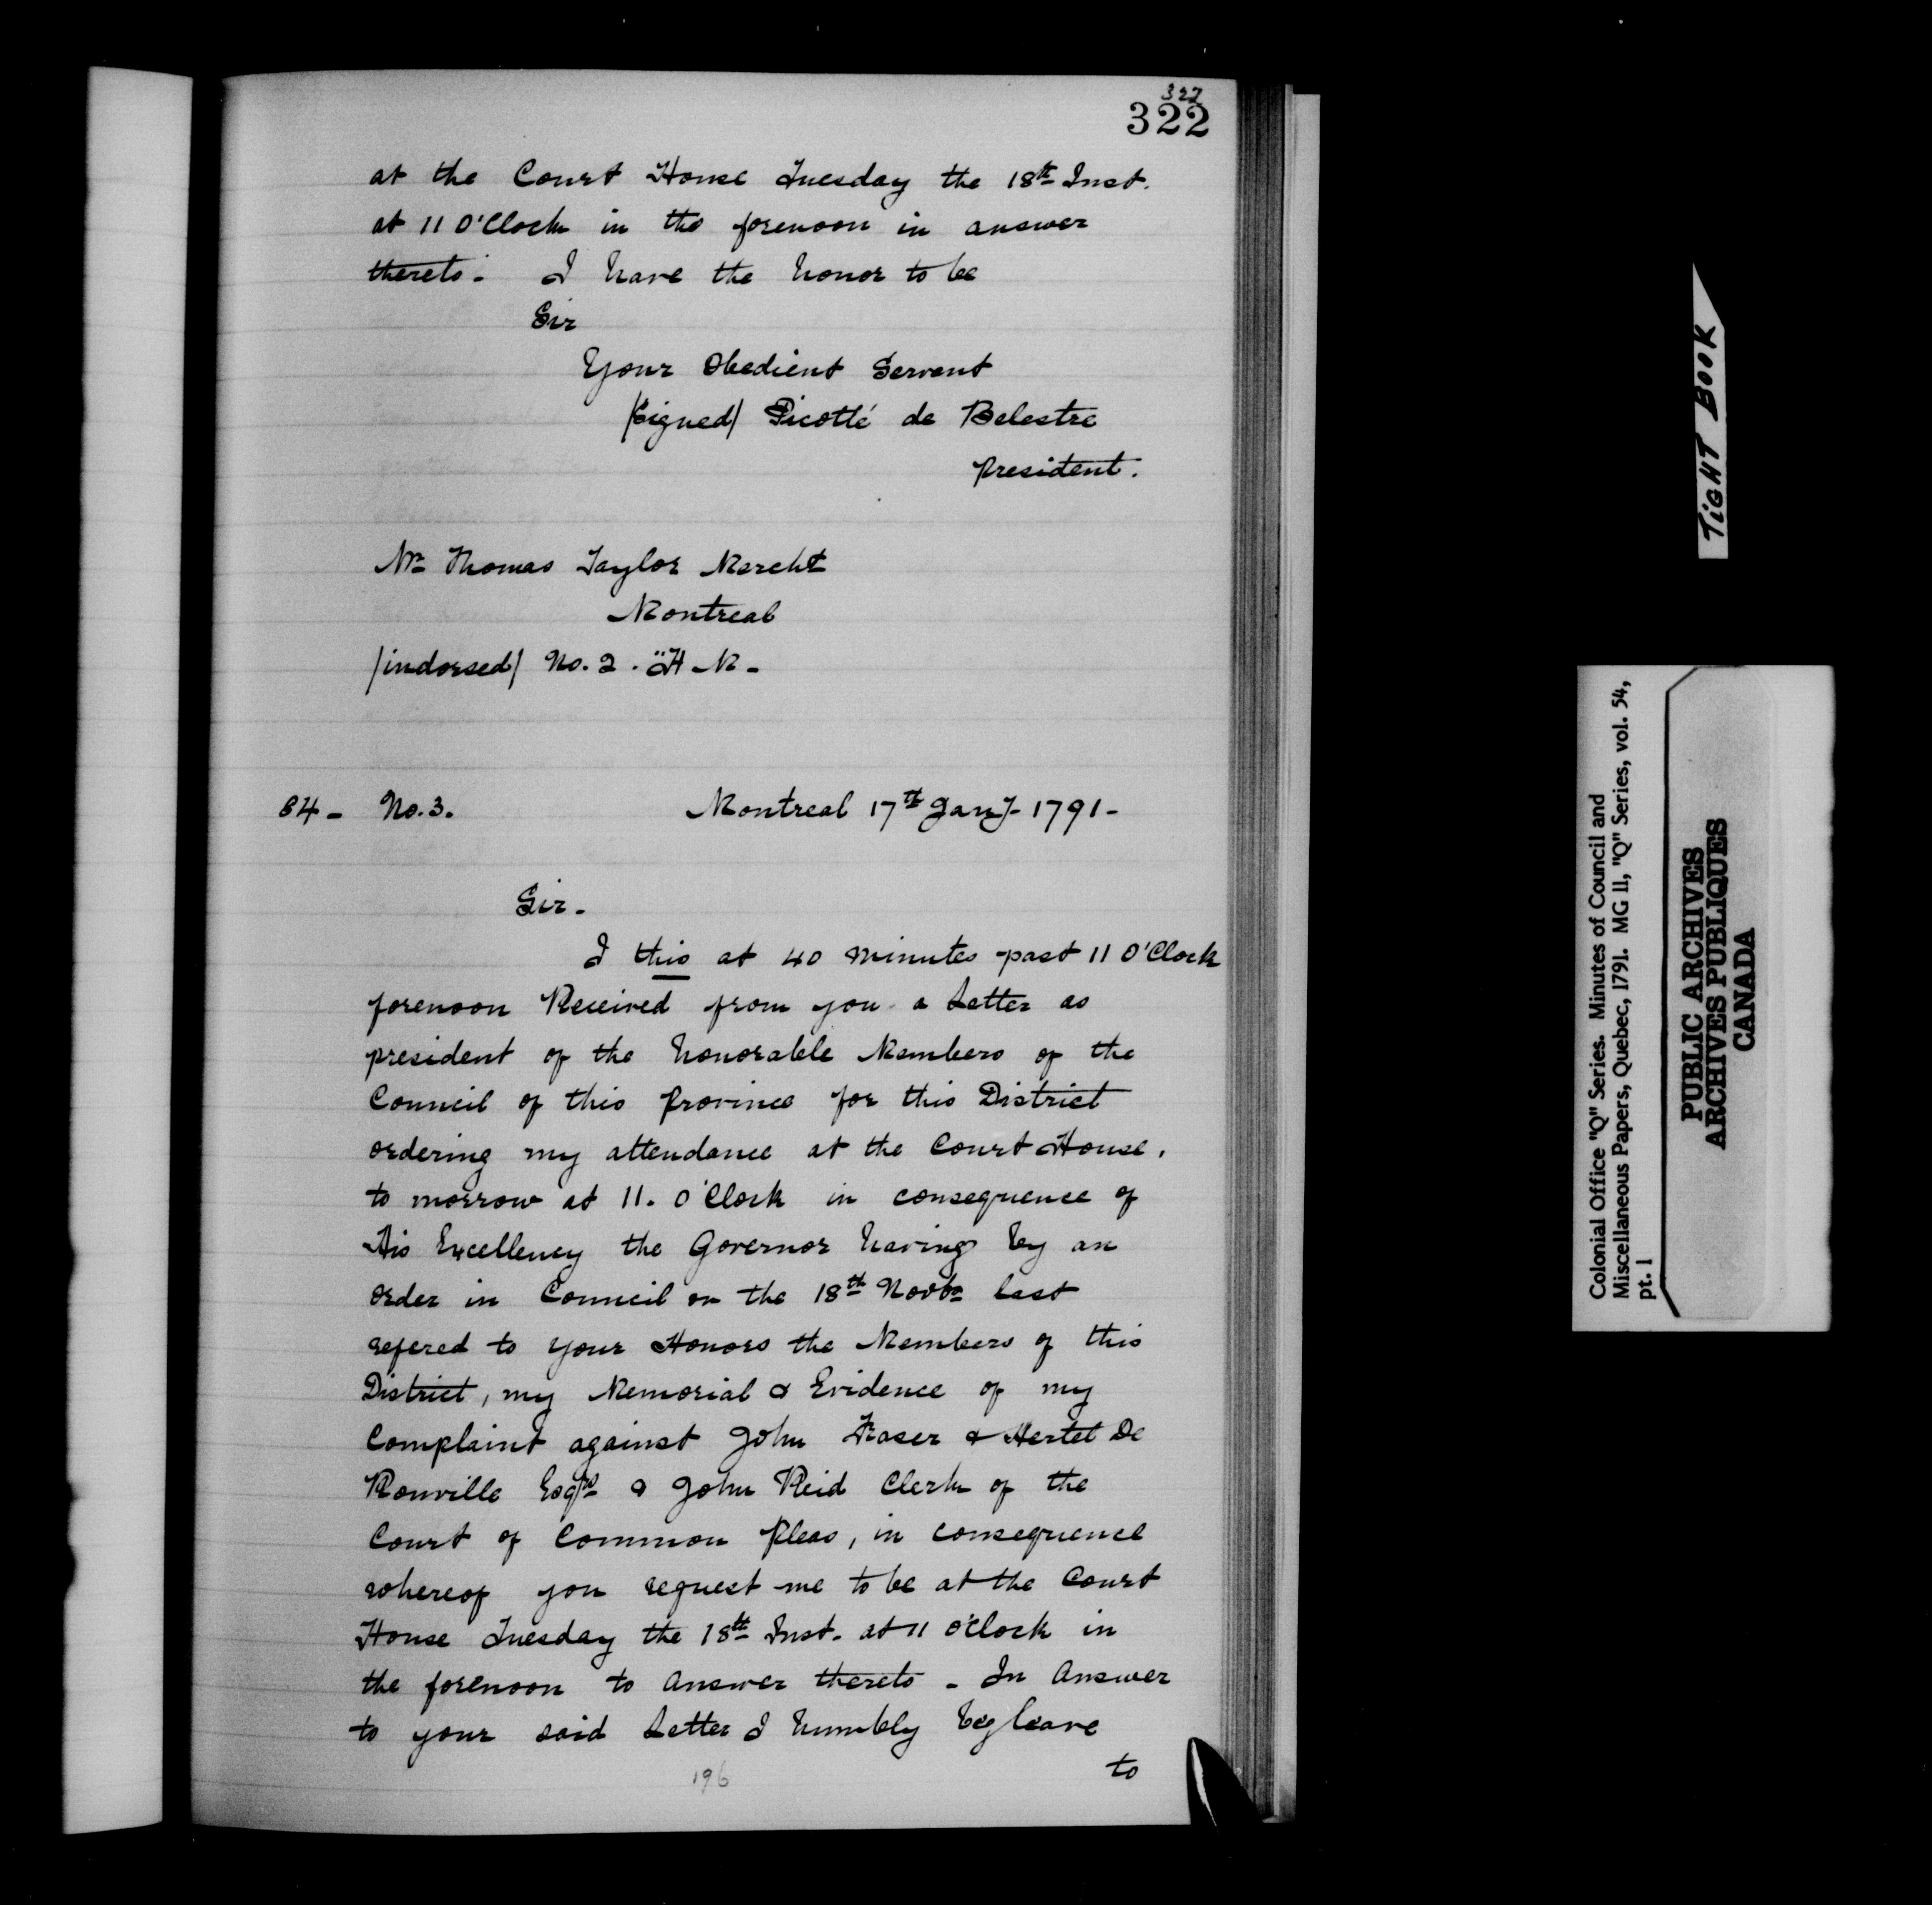 322
322
at the Court House Tuesday the 18th Inst.
at 11 O'Clock in the forenoon in answer
thereto. I have the honor to be
Sir
Your Obedient Servant
/signed/ Picotté de Belestre
president.
Mr Thomas Taylor Mercht
Montreal
/indorsed/ No. 2.
No. 3. Montreal 17th Jany 1791-
Sir.
I this at 40 minutes past 11 O'Clock
forenoon Received from you a Letter as
president of the honorable Members of the
Council of this province for this District
ordering my attendance at the Court House,
to morrow at 11. O'Clock in consequence of
His Excellency the Governor having by an
order in Council on the 18th Novbr last
refered to your Honors the Members of this
District, my Memorial & Evidence of my
Complaint against John Fraser & Hertel De
Rouville Esqrs & John Reid Clerk of the
Court of Common pleas, in consequence
whereof you request me to be at the Court
House Tuesday the 18th Inst. at 11 o'Clock in
the forenoon to answer thereto - In answer
to your said Letter I humbly beg leave
to
196
TIGHT BOOK
Colonial Office "Q" Series. Minutes of Council and
Miscellaneous Papers, Quebec, 1791. MG 11, "Q" Series, vol. 54,
pt. 1
PUBLIC ARCHIVES
ARCHIVES PUBLIQUES
CANADA